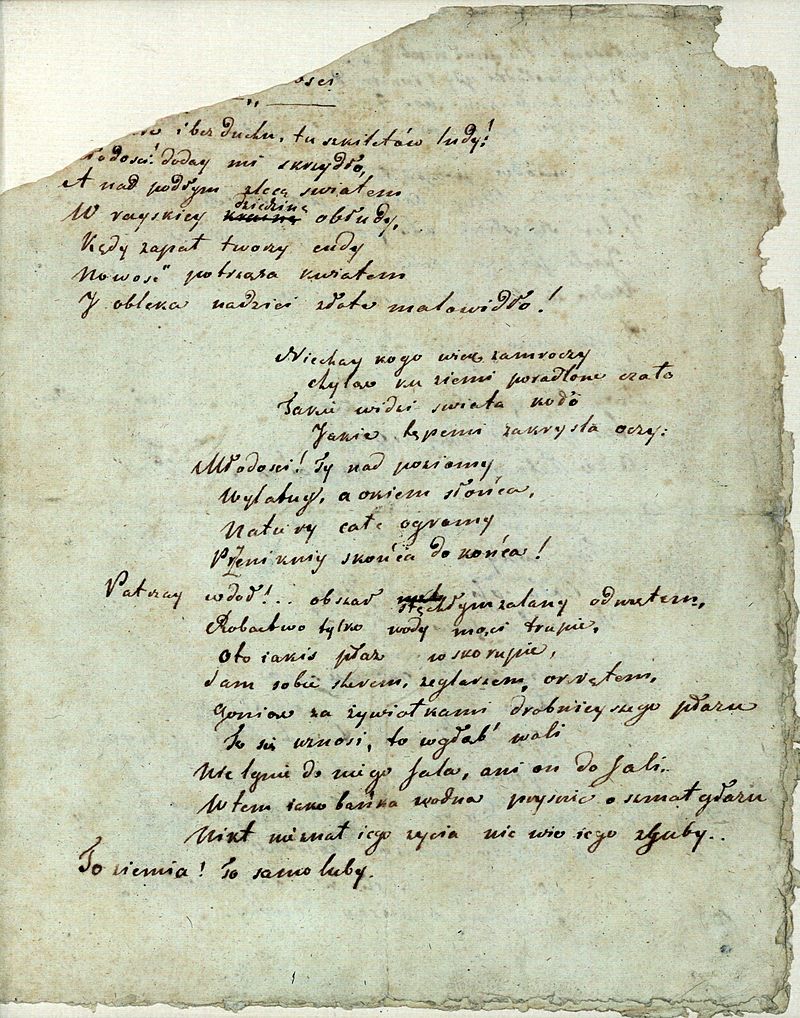 ości
i bez ducha, tu szkieletów ludy!
łodość! doday mi skrzydło,
A nad podłym zlecę swiatem
W rayskiey krainę dziedzinę obłudy,
Kędy zapał tworzy cudy
Nowość potrząsa kwiatem
J obleka nadziei złote malowidło!
Niechay kogo wiek zamroczy
chyląc ku ziemi poradlone czoło
Takie widzi swiata koło
Jakie tępemi zakrysla oczy:
Młodości! Ty nad poziomy
Wylatuy, a okiem słońca,
Natury całe ogromy
Przeniknij z końca do końca!
Patrzay w dół!.. obszar stęchłym zalany odmętem,
Robactwo tylko wody mąci trupie,
Oto iakiś płaz w skorupie,
Sam sobie sterem, żeglarzem, okrętem,
Goniąc za żywiołkami drobnieyszego płazu
To się wznosi, to wgłąb wali
Nie lgnie do niego fala, ani on do fali.
Wtem iako bańka wodna prysnie o szmat głazu
Nikt nieznał iego życia nie wie iego zguby..
To ziemia! To samoluby.